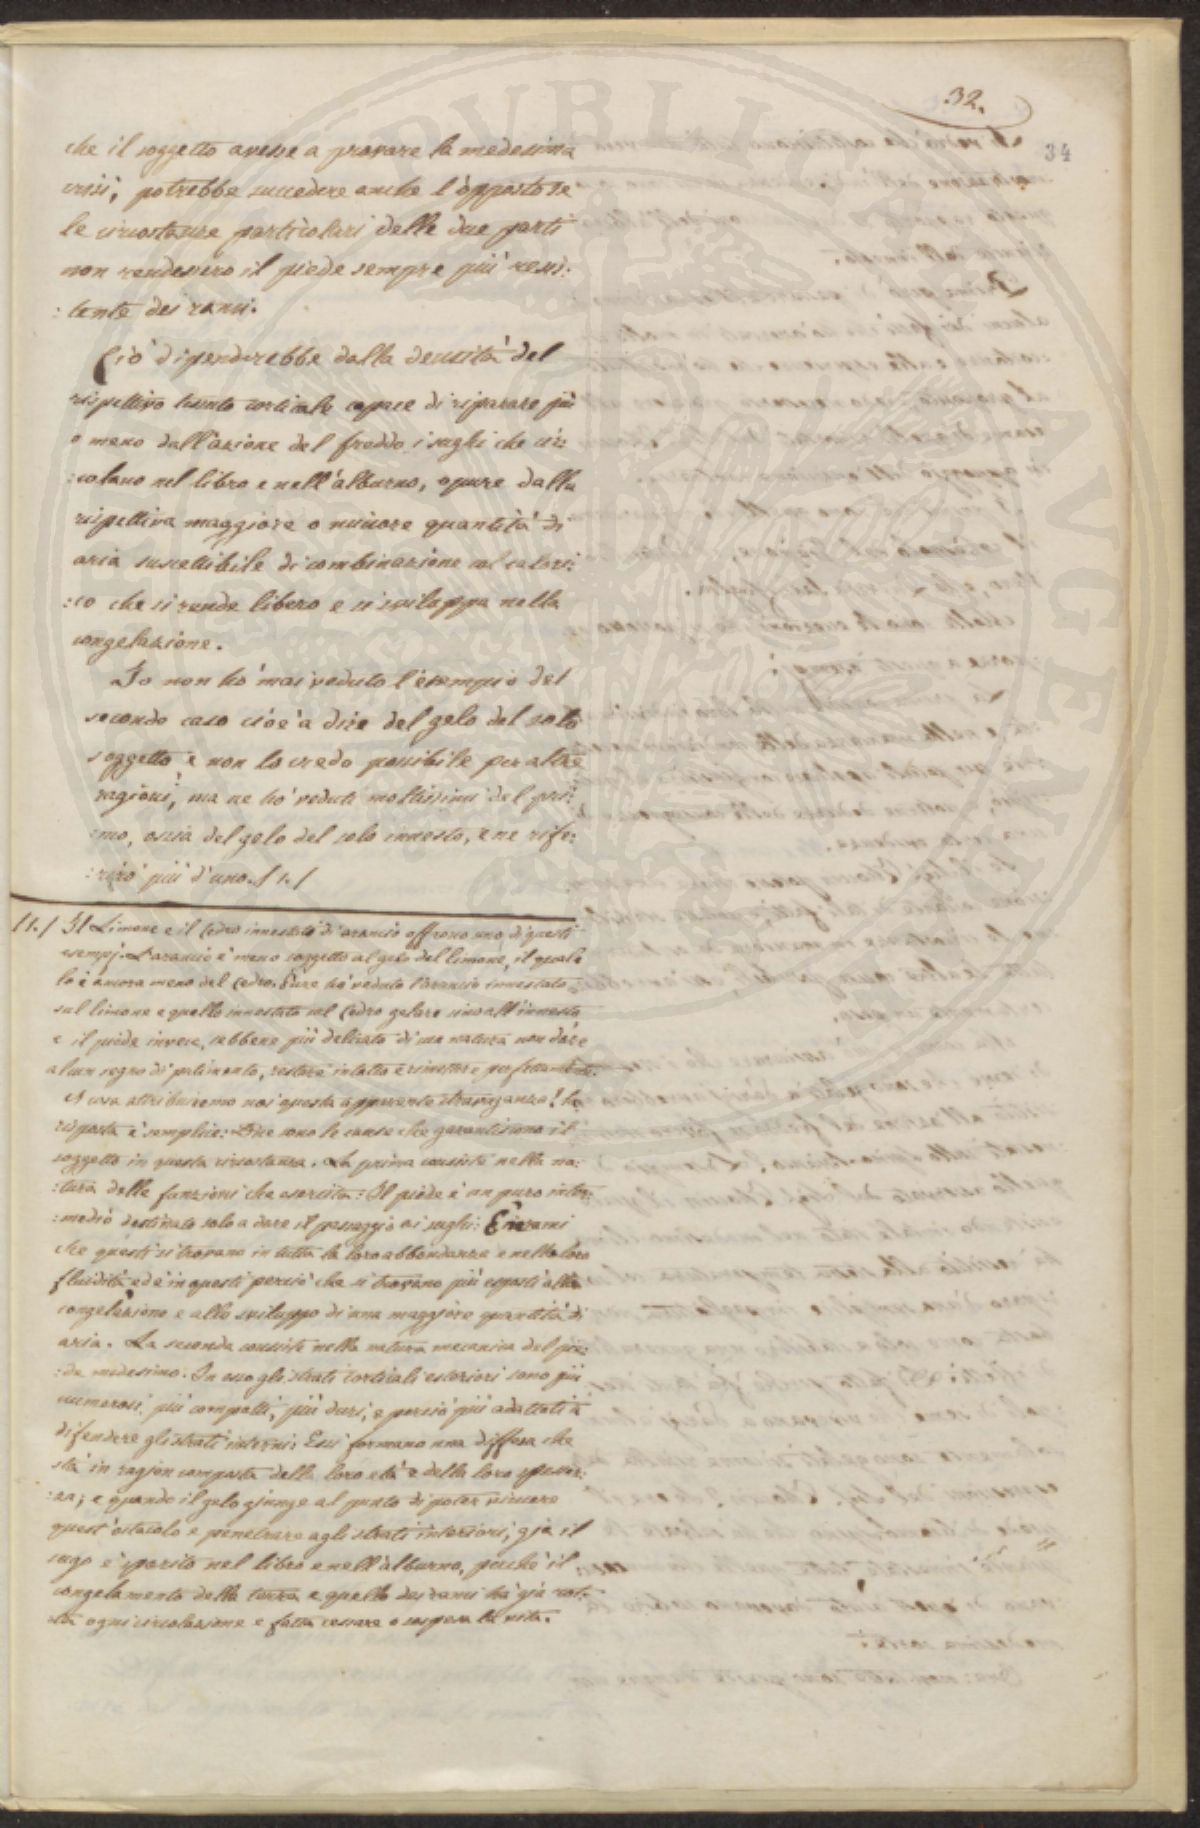 32.
34
che il soggetto avesse a provare la medesima
crisi, potrebbe succedere anche l'opposto se
le circostanze particolari delle due parti
non rendessero il piede sempre più resis:
:tente dei rami.
Ciò dipenderebbe dalla densità del
rispettivo tessuto corticale capace di riparare più
o meno dall'azione del freddo i sughi che cir:
:colano nel libro e nell'alburno, opure dalla
rispettiva maggiore o minore quantità di
aria suscettibile di combinazione col calori:
:co che si rende libero e si sviluppa nella
congelazione.
Io non hò mai veduto l'esempio del
secondo caso cioè a dire del gelo del solo
soggetto e non lo credo possibile per altre
ragioni, ma ne hò veduti moltissimi del pri:
:mo, ossia del gelo del solo innesto, e ne rife:
:rirò più d'uno. (1.)
(1.) Il Limone e il Cedro innestati di arancio offrono uno di questi
esempj. L'arancio è meno soggetto al gelo del limone, il quale
lo è ancora meno del Cedro. Pure hò veduto l'arancio innestato
sul limone e quello innestato sul Cedro gelare sino all'innesto
e il piede invece, sebbene più delicato di sua natura non dare
alcun segno di patimento, restare intatto e rimettere perfettamente.
A cosa attribuiremo noi questa apparente stravaganza? la
risposta è semplice: Due sono le cause che garantiscono il
soggetto in questa circostanza. La prima consiste nella na:
:tura delle funzioni che esercita: Il piede è un puro inter:
:medio destinato solo a dare il passaggio ai sughi: È in rami
che questi si trovano in tutta la loro abbondanza e nella loro
fluidità ed è in questi perciò che si trovano più esposti alla
congelazione e allo sviluppo di una maggiore quantità di
aria. La seconda consiste nella natura mecanica del pie:
:de medesimo. In esso gli strati corticali esteriori sono più
numerosi, più compatti, più duri, e perciò più adattati a
difendere gli strati interni: Essi formano una diffesa che
stà in ragion composta della loro età e della loro spessez:
:za; e quando il gelo giunge al punto di poter vincere
quest'ostacolo e penetrare agli strati interiori, già il
sugo è sparito nel libro e nell'alburno, perchè il
congelamento della terra e quello dei rami hà già
ogni circolazione e fatta cessare o sospesa la vita.